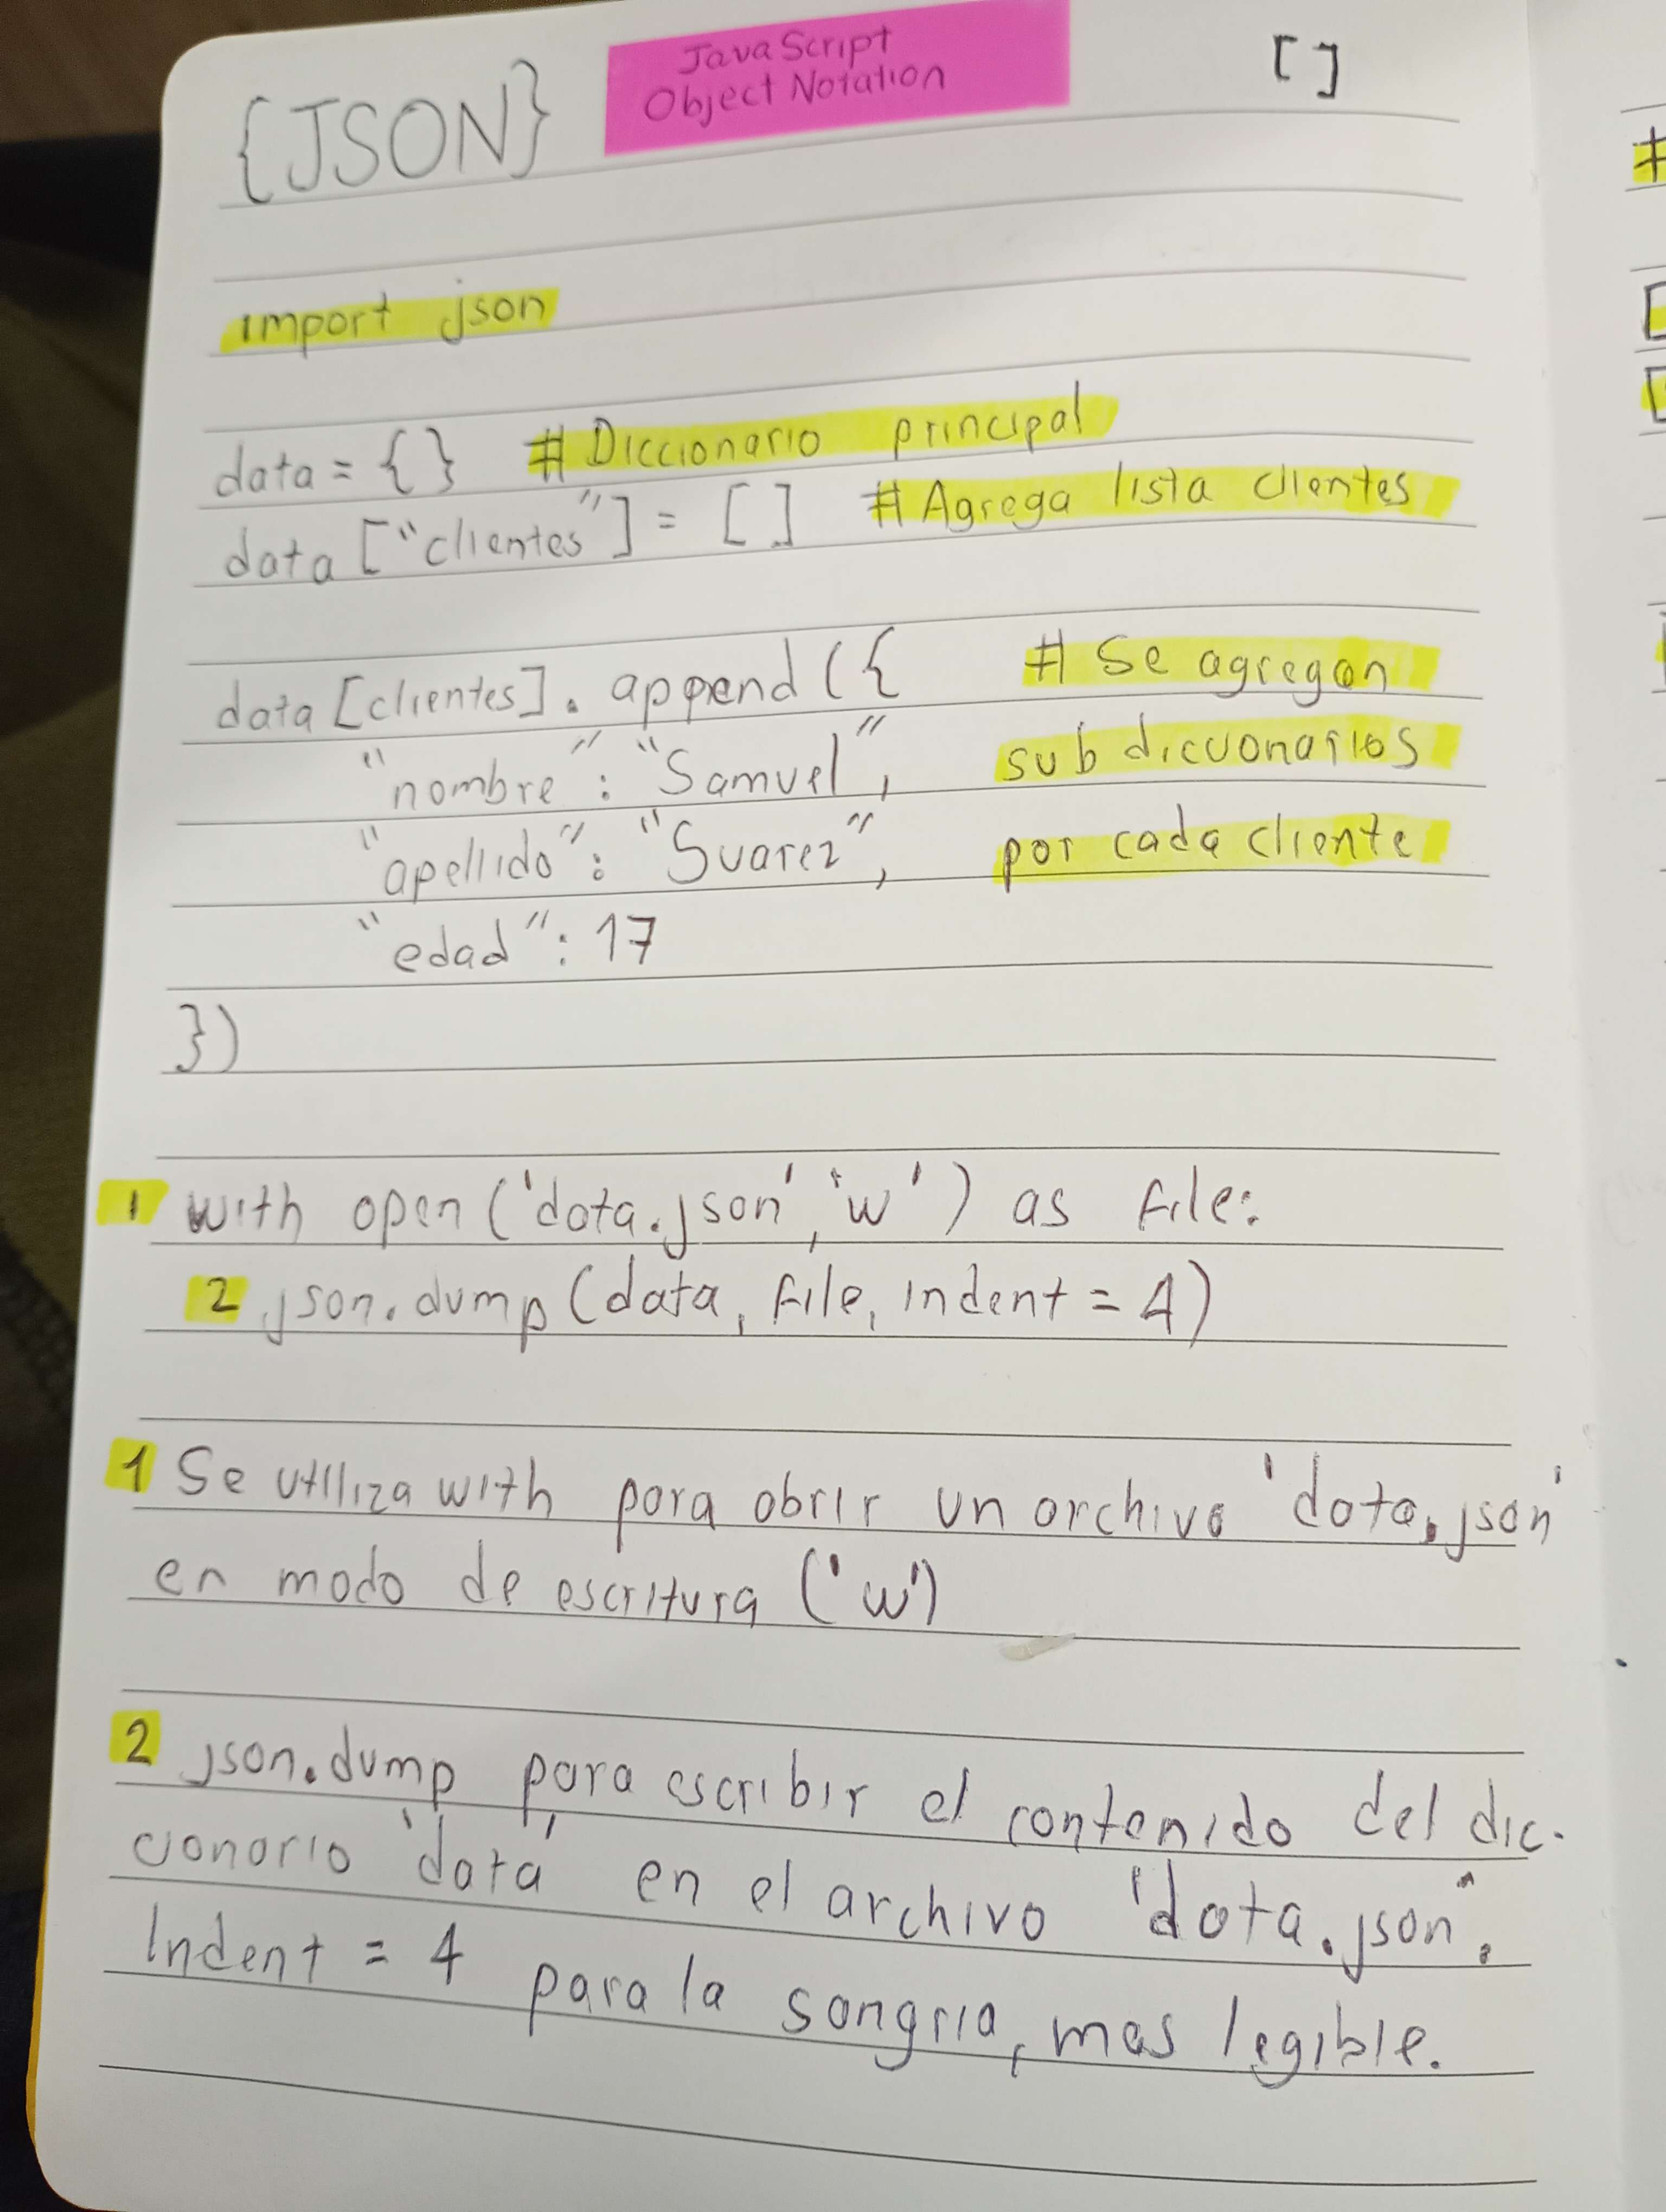 {JSON}
JavaScript
Object Notation
[]
import json
data = {} # Diccionario principal
data ["clientes"] = [] # Agrega lista clientes
data [clientes]. append ({ # Se agregan
"nombre": "Samuel", sub diccionarios
"apellido": "Suarez", por cada cliente
"edad": 17
})
1 with open ('data.json', 'w') as file:
2 json.dump (data, file, indent = 4)
1 Se utiliza with para abrir un archivo 'data.json'
en modo de escritura ('w')
2 json.dump para escribir el contenido del dic-
cionario 'data' en el archivo 'data.json".
Indent = 4 para la sangria, mas legible.